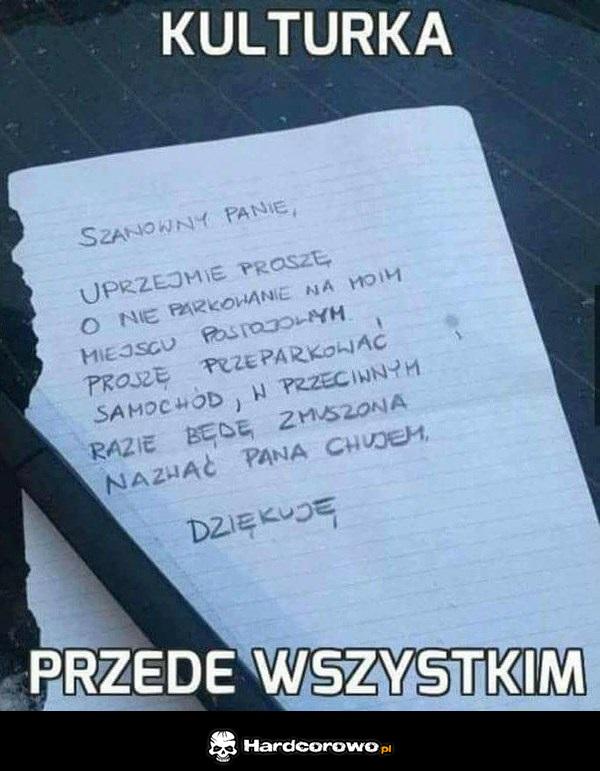 KULTURKA
SZANOWNY PANIE,
UPRZEJMIE PROSZĘ
O NIE PARKOWANIE NA MOIM
MIEJSCU POSTOJOWYM.
PROSZĘ PRZEPARKOWAĆ
SAMOCHÓD, W PRZECIWNYM
RAZIE BĘDĘ ZMUSZONA
NAZWAĆ PANA CHUJEM.
DZIĘKUJĘ
PRZEDE WSZYSTKIM
Hardcorowo.pl